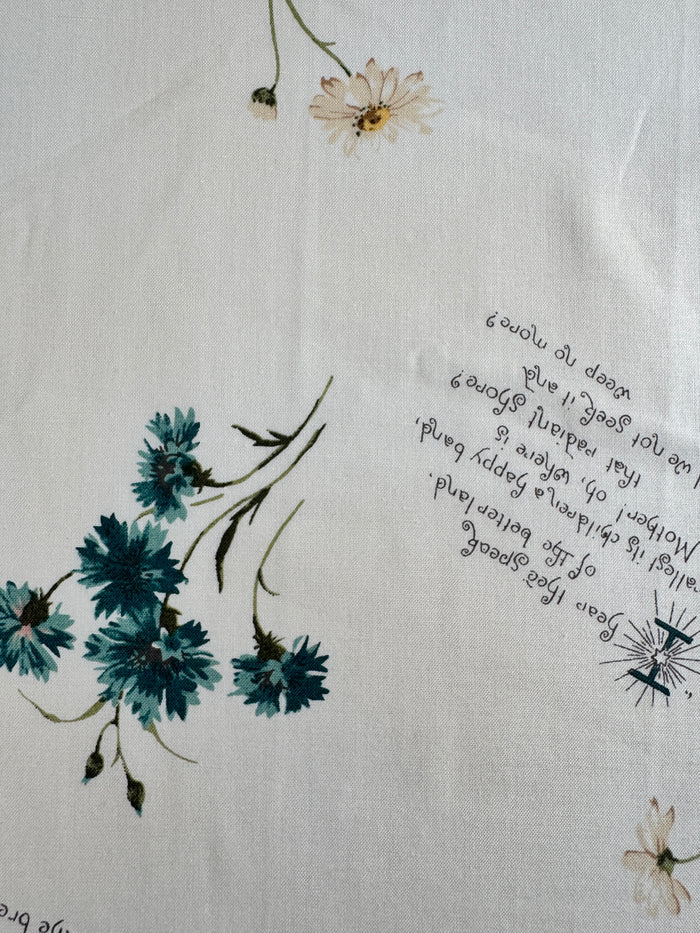 "I
hear thee speak
of the better land.
allest its children,a happy band,
Mother! oh, where is
that radiant shore?
we not seek it and
weep no more?